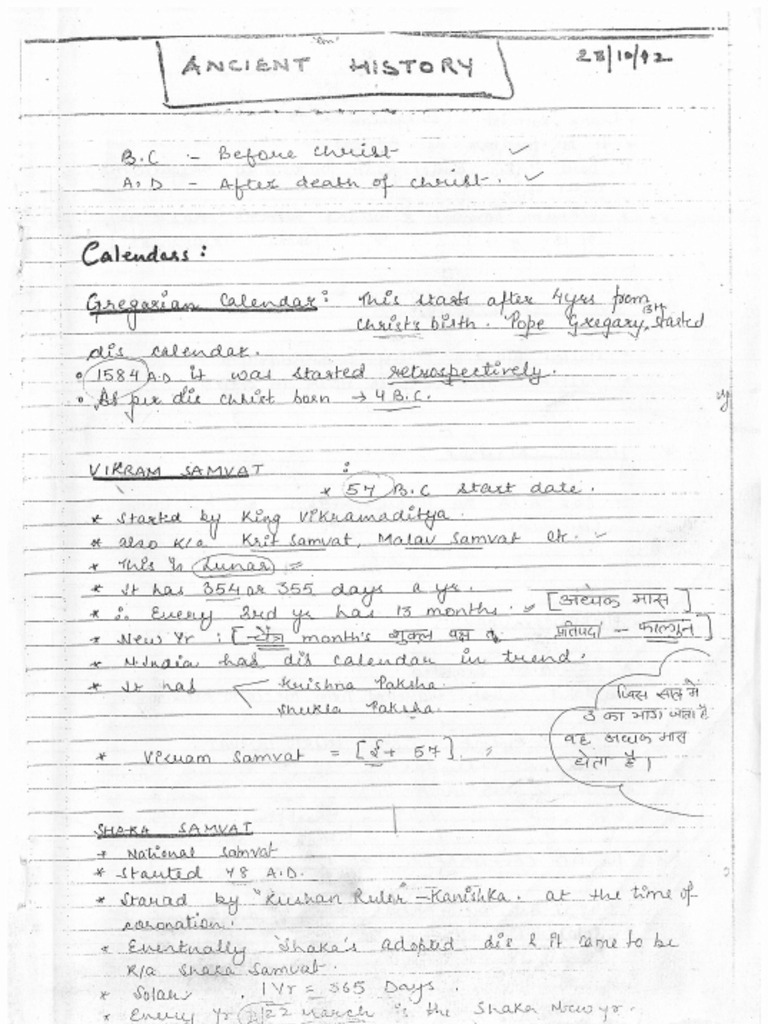 ANCIENT HISTORY
28/10/92
B.C :- Before Christ
A.D - After death of Christ.
Calendars :
Gregarian Calendar : This starts after 4yrs from
Christ's birth. Pope Gregary 13th, started
dis calendar.
1584 A.D it was started retrospectively.
As per dis Christ born → 4 B.C.
VIKRAM SAMVAT :
* 57 B.C start date.
* Started by King Vikramaditya.
* also K/a Krit Samvat, Malav Samvat etc.
* This is Lunar
* It has 354 or 355 days a yr.
* ∴ Every 3rd yr has 13 months. [अधिक मास]
* New Yr : [चैत्र month's शुक्ल पक्ष प्रतिपदा - फाल्गुन]
* N.India has dis calendar in trend.
* It has Krishna Paksha
Shukla Paksha.
जिस साल मे
3 का भाग जाता है
वह अधिक मास
होता है।
* Vikram Samvat = [ई + 57]
SHAKA SAMVAT
* National Samvat
* Started 78 A.D.
* Starad by "Kushan Ruler" - Kanishka. at the time of
coronation.
* Eventually Shaka's adopted dis & it came to be
K/a Shaka Samvat.
* Solar. 1 Yr = 365 Days.
* Every Yr 22 March is the Shaka New yr.